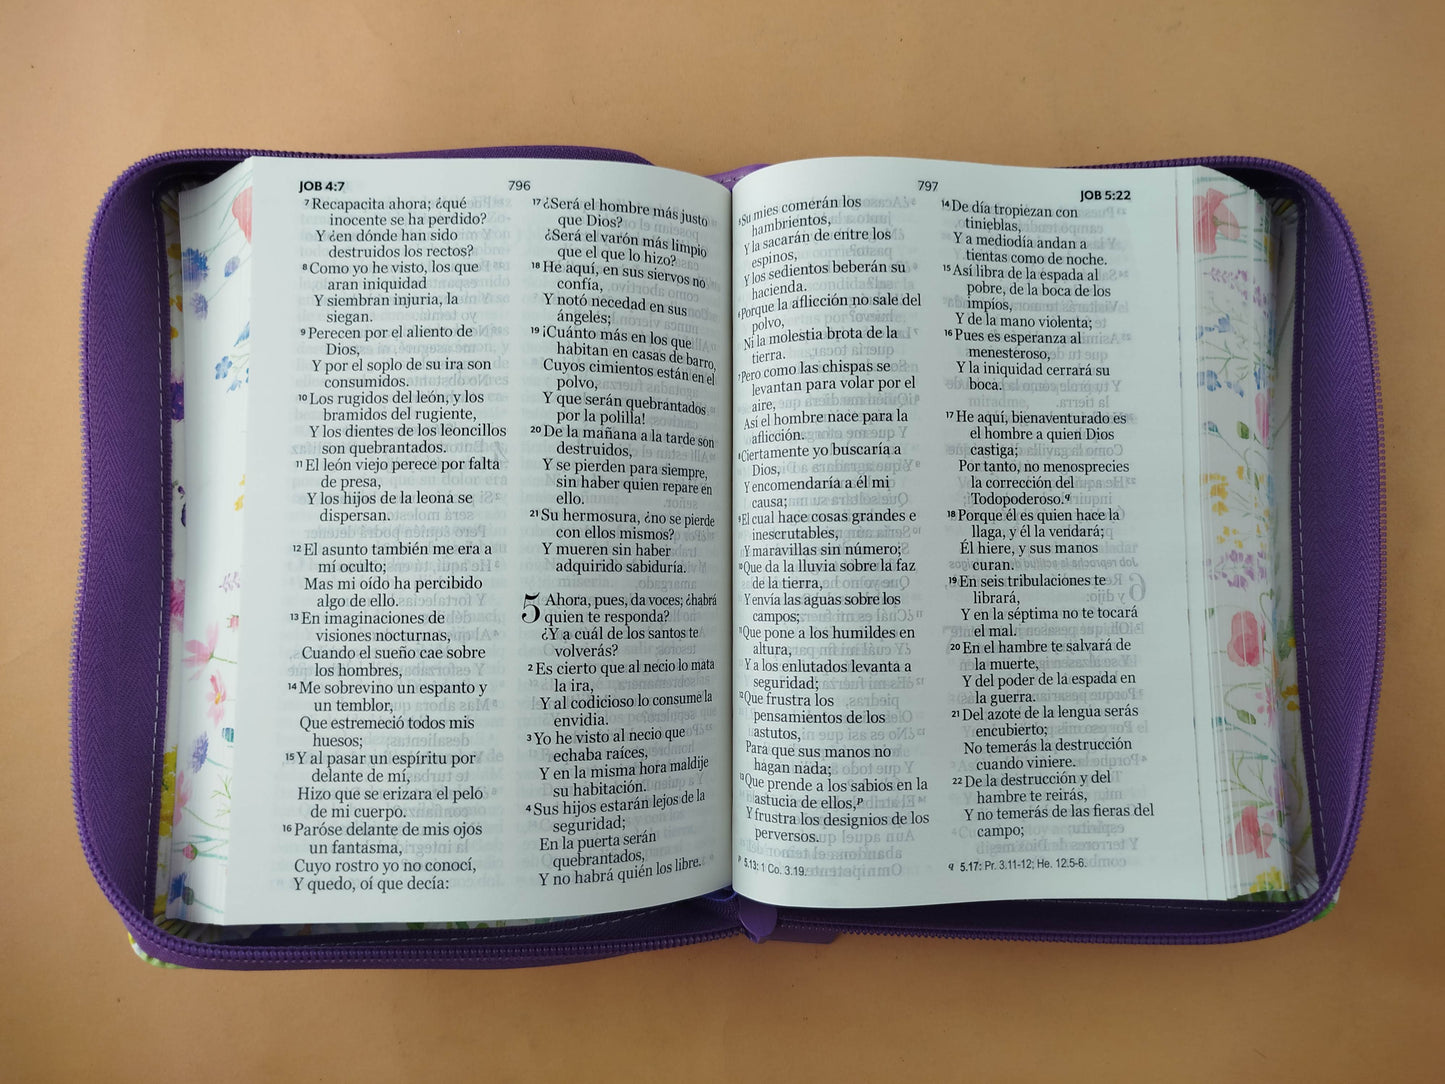 JOB 4:7
796
7 Recapacita ahora; ¿qué
inocente se ha perdido?
Y ¿en dónde han sido
destruidos los rectos?
8 Como yo he visto, los que
aran iniquidad
Y siembran injuria, la
siegan.
9 Perecen por el aliento de
Dios,
Y por el soplo de su ira son
consumidos.
10 Los rugidos del león, y los
bramidos del rugiente,
Y los dientes de los leoncillos
son quebrantados.
11 El león viejo perece por falta
de presa,
Y los hijos de la leona se
dispersan.
12 El asunto también me era a
mí oculto;
Mas mi oído ha percibido
algo de ello.
13 En imaginaciones de
visiones nocturnas,
Cuando el sueño cae sobre
los hombres,
14 Me sobrevino un espanto y
un temblor,
Que estremeció todos mis
huesos;
15 Y al pasar un espíritu por
delante de mí,
Hizo que se erizara el pelo
de mi cuerpo.
16 Paróse delante de mis ojos
un fantasma,
Cuyo rostro yo no conocí,
Y quedo, oí que decía:
17 ¿Será el hombre más justo
que Dios?
¿Será el varón más limpio
que el que lo hizo?
18 He aquí, en sus siervos no
confía,
Y notó necedad en sus
ángeles;
19 ¡Cuánto más en los que
habitan en casas de barro,
Cuyos cimientos están en el
polvo,
Y que serán quebrantados
por la polilla!
20 De la mañana a la tarde son
destruidos,
Y se pierden para siempre,
sin haber quien repare en
ello.
21 Su hermosura, ¿no se pierde
con ellos mismos?
Y mueren sin haber
adquirido sabiduría.
5 Ahora, pues, da voces; ¿habrá
quien te responda?
¿Y a cuál de los santos te
volverás?
2 Es cierto que al necio lo mata
la ira,
Y al codicioso lo consume la
envidia.
3 Yo he visto al necio que
echaba raíces,
Y en la misma hora maldije
su habitación.
4 Sus hijos estarán lejos de la
seguridad;
En la puerta serán
quebrantados,
Y no habrá quién los libre.
797
JOB 5:22
5 Su mies comerán los
hambrientos,
Y la sacarán de entre los
espinos,
Y los sedientos beberán su
hacienda.
6 Porque la aflicción no sale del
polvo,
Ni la molestia brota de la
tierra.
7 Pero como las chispas se
levantan para volar por el
aire,
Así el hombre nace para la
aflicción.
8 Ciertamente yo buscaría a
Dios,
Y encomendaría a él mi
causa;
9 El cual hace cosas grandes e
inescrutables,
Y maravillas sin número;
10 Que da la lluvia sobre la faz
de la tierra,
Y envía las aguas sobre los
campos;
11 Que pone a los humildes en
altura,
Y a los enlutados levanta a
seguridad;
12 Que frustra los
pensamientos de los
astutos,
Para que sus manos no
hagan nada;
13 Que prende a los sabios en la
astucia de ellos,p
Y frustra los designios de los
perversos.
14 De día tropiezan con
tinieblas,
Y a mediodía andan a
tientas como de noche.
15 Así libra de la espada al
pobre, de la boca de los
impíos,
Y de la mano violenta;
16 Pues es esperanza al
menesteroso,
Y la iniquidad cerrará su
boca.
17 He aquí, bienaventurado es
el hombre a quien Dios
castiga;
Por tanto, no menosprecies
la corrección del
Todopoderoso.q
18 Porque él es quien hace la
llaga, y él la vendará;
Él hiere, y sus manos
curan.
19 En seis tribulaciones te
librará,
Y en la séptima no te tocará
el mal.
20 En el hambre te salvará de
la muerte,
Y del poder de la espada en
la guerra.
21 Del azote de la lengua serás
encubierto;
No temerás la destrucción
cuando viniere.
22 De la destrucción y del
hambre te reirás,
Y no temerás de las fieras del
campo;
p 5.13: 1 Co. 3.19.
q 5.17: Pr. 3.11-12; He. 12.5-6.